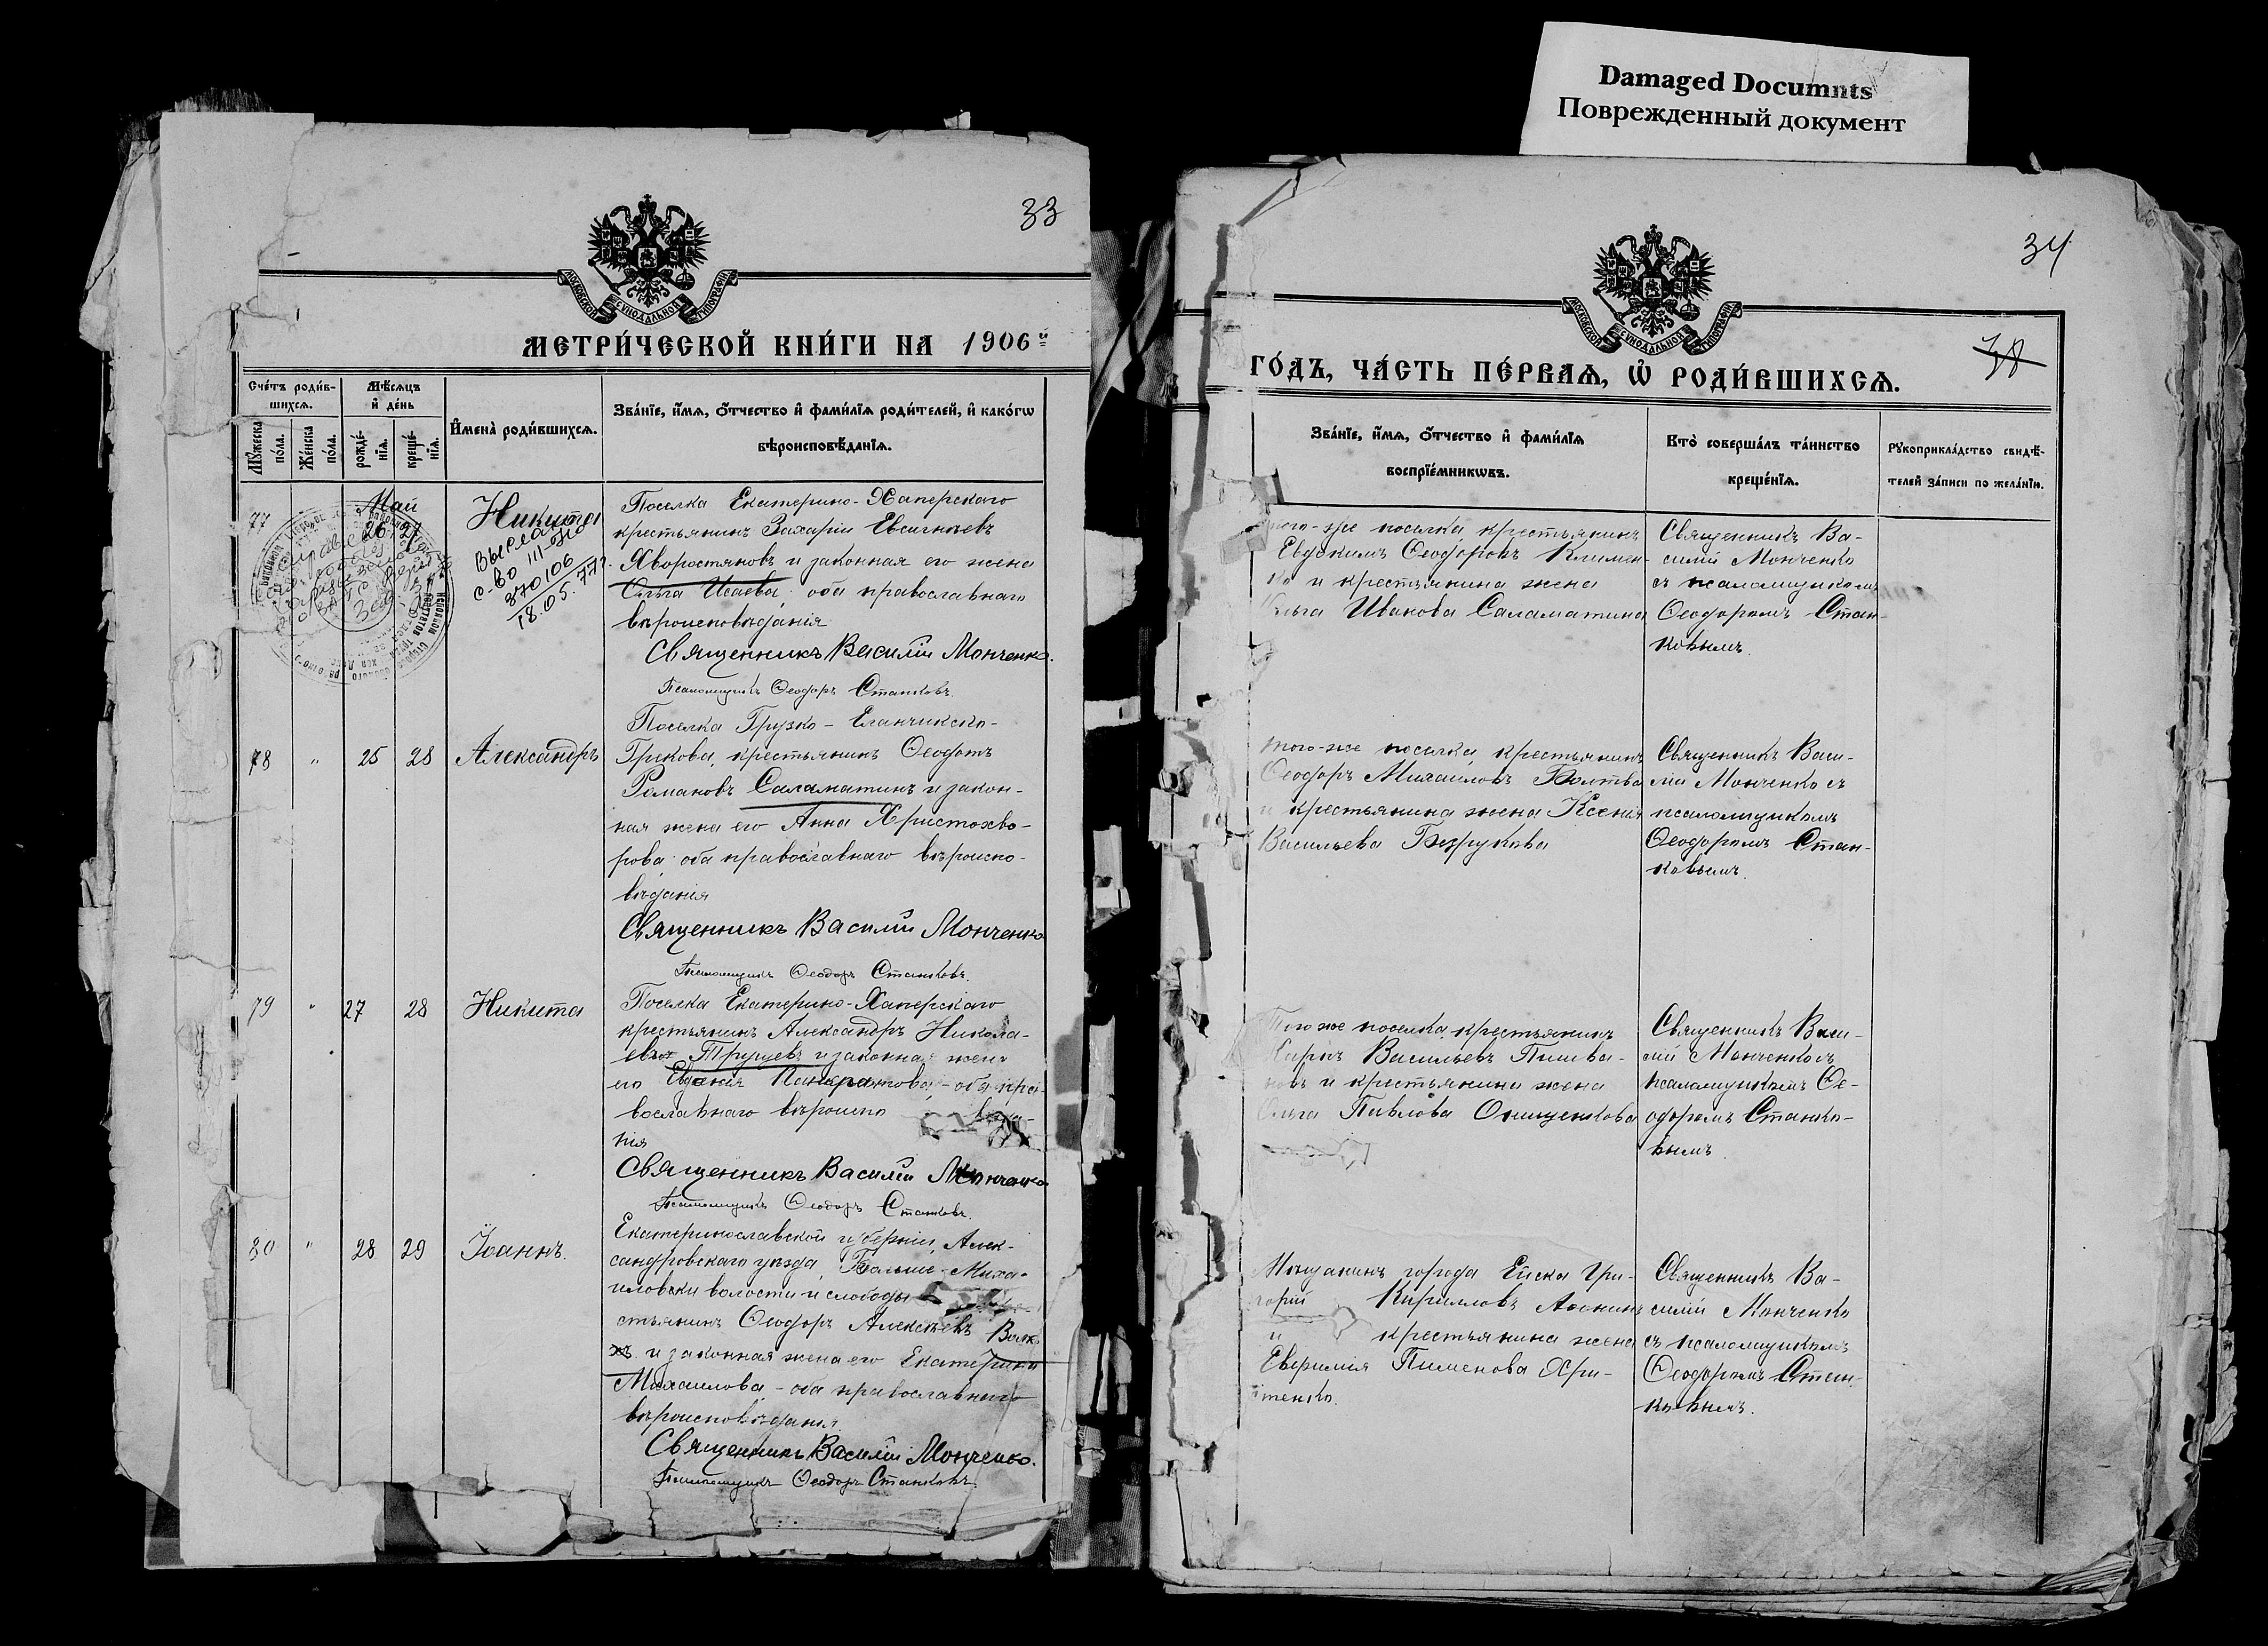 Damaged Documnts
Поврежденный документ
33
МОСКОВСКОЙ СѴНОДАЛЬНОЙ ТИПОГРАФІИ
МЕТРИ́ЧЕСКОЙ КНИ́ГИ НА 1906й
Сче́тъ роди́в-
шихсѧ.
Мѣ́сѧцъ
и҆ де́нь
Мꙋ́жеска по́ла.
Же́нска по́ла.
рожде́-
нїѧ.
креще́-
нїѧ.
И҆мена̀ роди́вшихсѧ.
Зва́нїе, и҆́мѧ, ѻ҆́тчество и҆ фами́лїѧ роди́телей, и҆ како́гѡ
вѣроисповѣ́данїѧ.
77
Май
26
Никита
Выслано
с-во III-
870106
18.05.77г.
Поселка Екатерино-Хаперскаго
крестьянинъ Захарій Евсигнѣевъ
Хворостяновъ и законная его жена
Ольга Исаева, оба православнаго
вѣроисповѣданія
Священникъ Василій Монченко.
Псаломщикъ Ѳеодоръ Станковъ.
78 " 25 28 Александръ
Поселка Грузко-Еланчикско-
Грекова, крестьянинъ Ѳеодотъ
Романовъ Саламатинъ и закон-
ная жена его Анна Христохво-
рова оба православнаго вѣроиспо-
вѣданія
Священникъ Василій Монченко
Псаломщикъ Ѳеодоръ Станковъ.
79 " 27 28 Никита
Поселка Екатерино-Хаперскаго
крестьянинъ Александръ Никола-
евъ и законная жена
его Панкратова, оба пра-
вославнаго вѣроиспо вѣда-
нія
Священникъ Василій Монченко
Псаломщикъ Ѳеодоръ Станковъ.
80 " 28 29 Іоаннъ.
Екатеринославской губерніи, Алек-
сандровскаго уѣзда, Больше-Миха-
иловски волости и слободы
стьянинъ Ѳеодоръ Алексѣевъ
и законная жена его Екатерина
Михаилова - оба православнаго
вѣроисповѣданія.
Священникъ Василій Монченко.
Псаломщикъ Ѳеодоръ Станковъ.
34
МОСКОВСКОЙ СѴНОДАЛЬНОЙ ТИПОГРАФІИ
ГО́ДЪ, ЧА́СТЬ ПЕ́РВАѦ, Ѽ РОДИ́ВШИХСѦ.
Зва́нїе, и҆́мѧ, ѻ҆́тчество и҆ фами́лїѧ
воспрїе́мникѡвъ.
Кто̀ соверша́лъ та́инство
креще́нїѧ.
Рꙋкоприкла́дство свидѣ́-
телей за́писи по жела́нїю.
того-же поселка, крестьянинъ
Евдокимъ Ѳеодоровъ Климен-
ко и крестьянина жена
Ольга Иванова Саламатина
Священникъ Ва-
силій Монченко
съ псаломщикомъ
Ѳеодоромъ Стан-
ковымъ.
того-же поселка, крестьянинъ
Ѳеодоръ Михаиловъ Болтва
и крестьянина жена Ксенія
Васильева Безрукова
Священникъ Васи-
лій Монченко съ
псаломщикомъ
Ѳеодоромъ Стан-
ковымъ.
Того же поселка, крестьянинъ
Васильевъ Пшива-
новъ и крестьянина жена
Ольга Павлова Онищенкова
Священникъ Васи-
лій Монченко съ
псаломщикомъ Ѳе-
одоромъ Станко-
вымъ.
Мѣщанинъ города Ейска Гри-
горій Кирилловъ Аѳонинъ
и крестьянина жена
Евфимія Пименова Хри-
тенко.
Священникъ Ва-
силій Монченко
съ псаломщикомъ
Ѳеодоромъ Стан-
ковымъ.